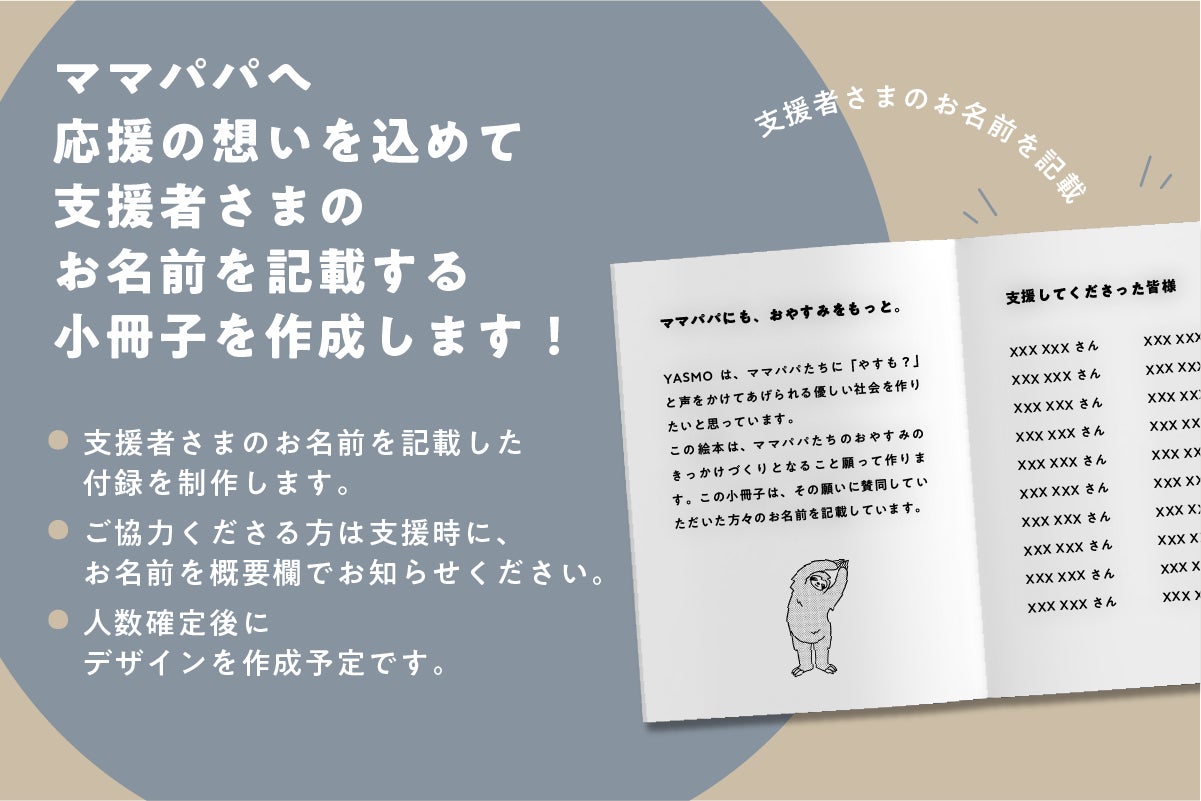 ママパパへ
応援の想いを込めて
支援者さまの
お名前を記載する
小冊子を作成します！
支援者さまのお名前を記載した
付録を制作します。
ご協力くださる方は支援時に、
お名前を概要欄でお知らせください。
人数確定後に
デザインを作成予定です。
支援者さまのお名前を記載
ママパパにも、おやすみをもっと。
YASMO は、ママパパたちに「やすも？」
と声をかけてあげられる優しい社会を作り
たいと思っています。
この絵本は、ママパパたちのおやすみの
きっかけづくりとなること願って作りま
す。この小冊子は、その願いに賛同してい
ただいた方々のお名前を記載しています。
支援してくださった皆様
XXX XXX さん XXX XXX
XXX XXX さん XXX XXX
XXX XXX さん XXX XX
XXX XXX さん XXX XX
XXX XXX さん XXX XX
XXX XXX さん XXX XX
XXX XXX さん XXX XX
XXX XXX さん XXX X
XXX XXX さん XXX X
XXX XXX さん XXX X